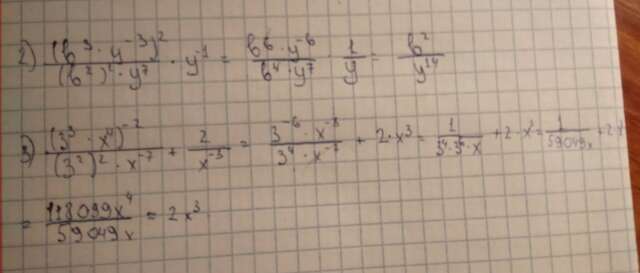 2) (b³ · y⁻³)² / (b²)² · y⁷ · y⁻¹ = b⁶ · y⁻⁶ / b⁴ · y⁷ · 1/y = b² / y¹⁴
3) (3³ · x⁴)⁻² / (3²)² · x⁻⁷ + 2 / x⁻³ = 3⁻⁶ · x⁻⁸ / 3⁴ · x⁻⁷ + 2 · x³ = 1 / 3⁴ · 3⁶ · x + 2 · x³ = 1 / 59049x + 2 ·
= 118099x⁴ / 59049x = 2x³